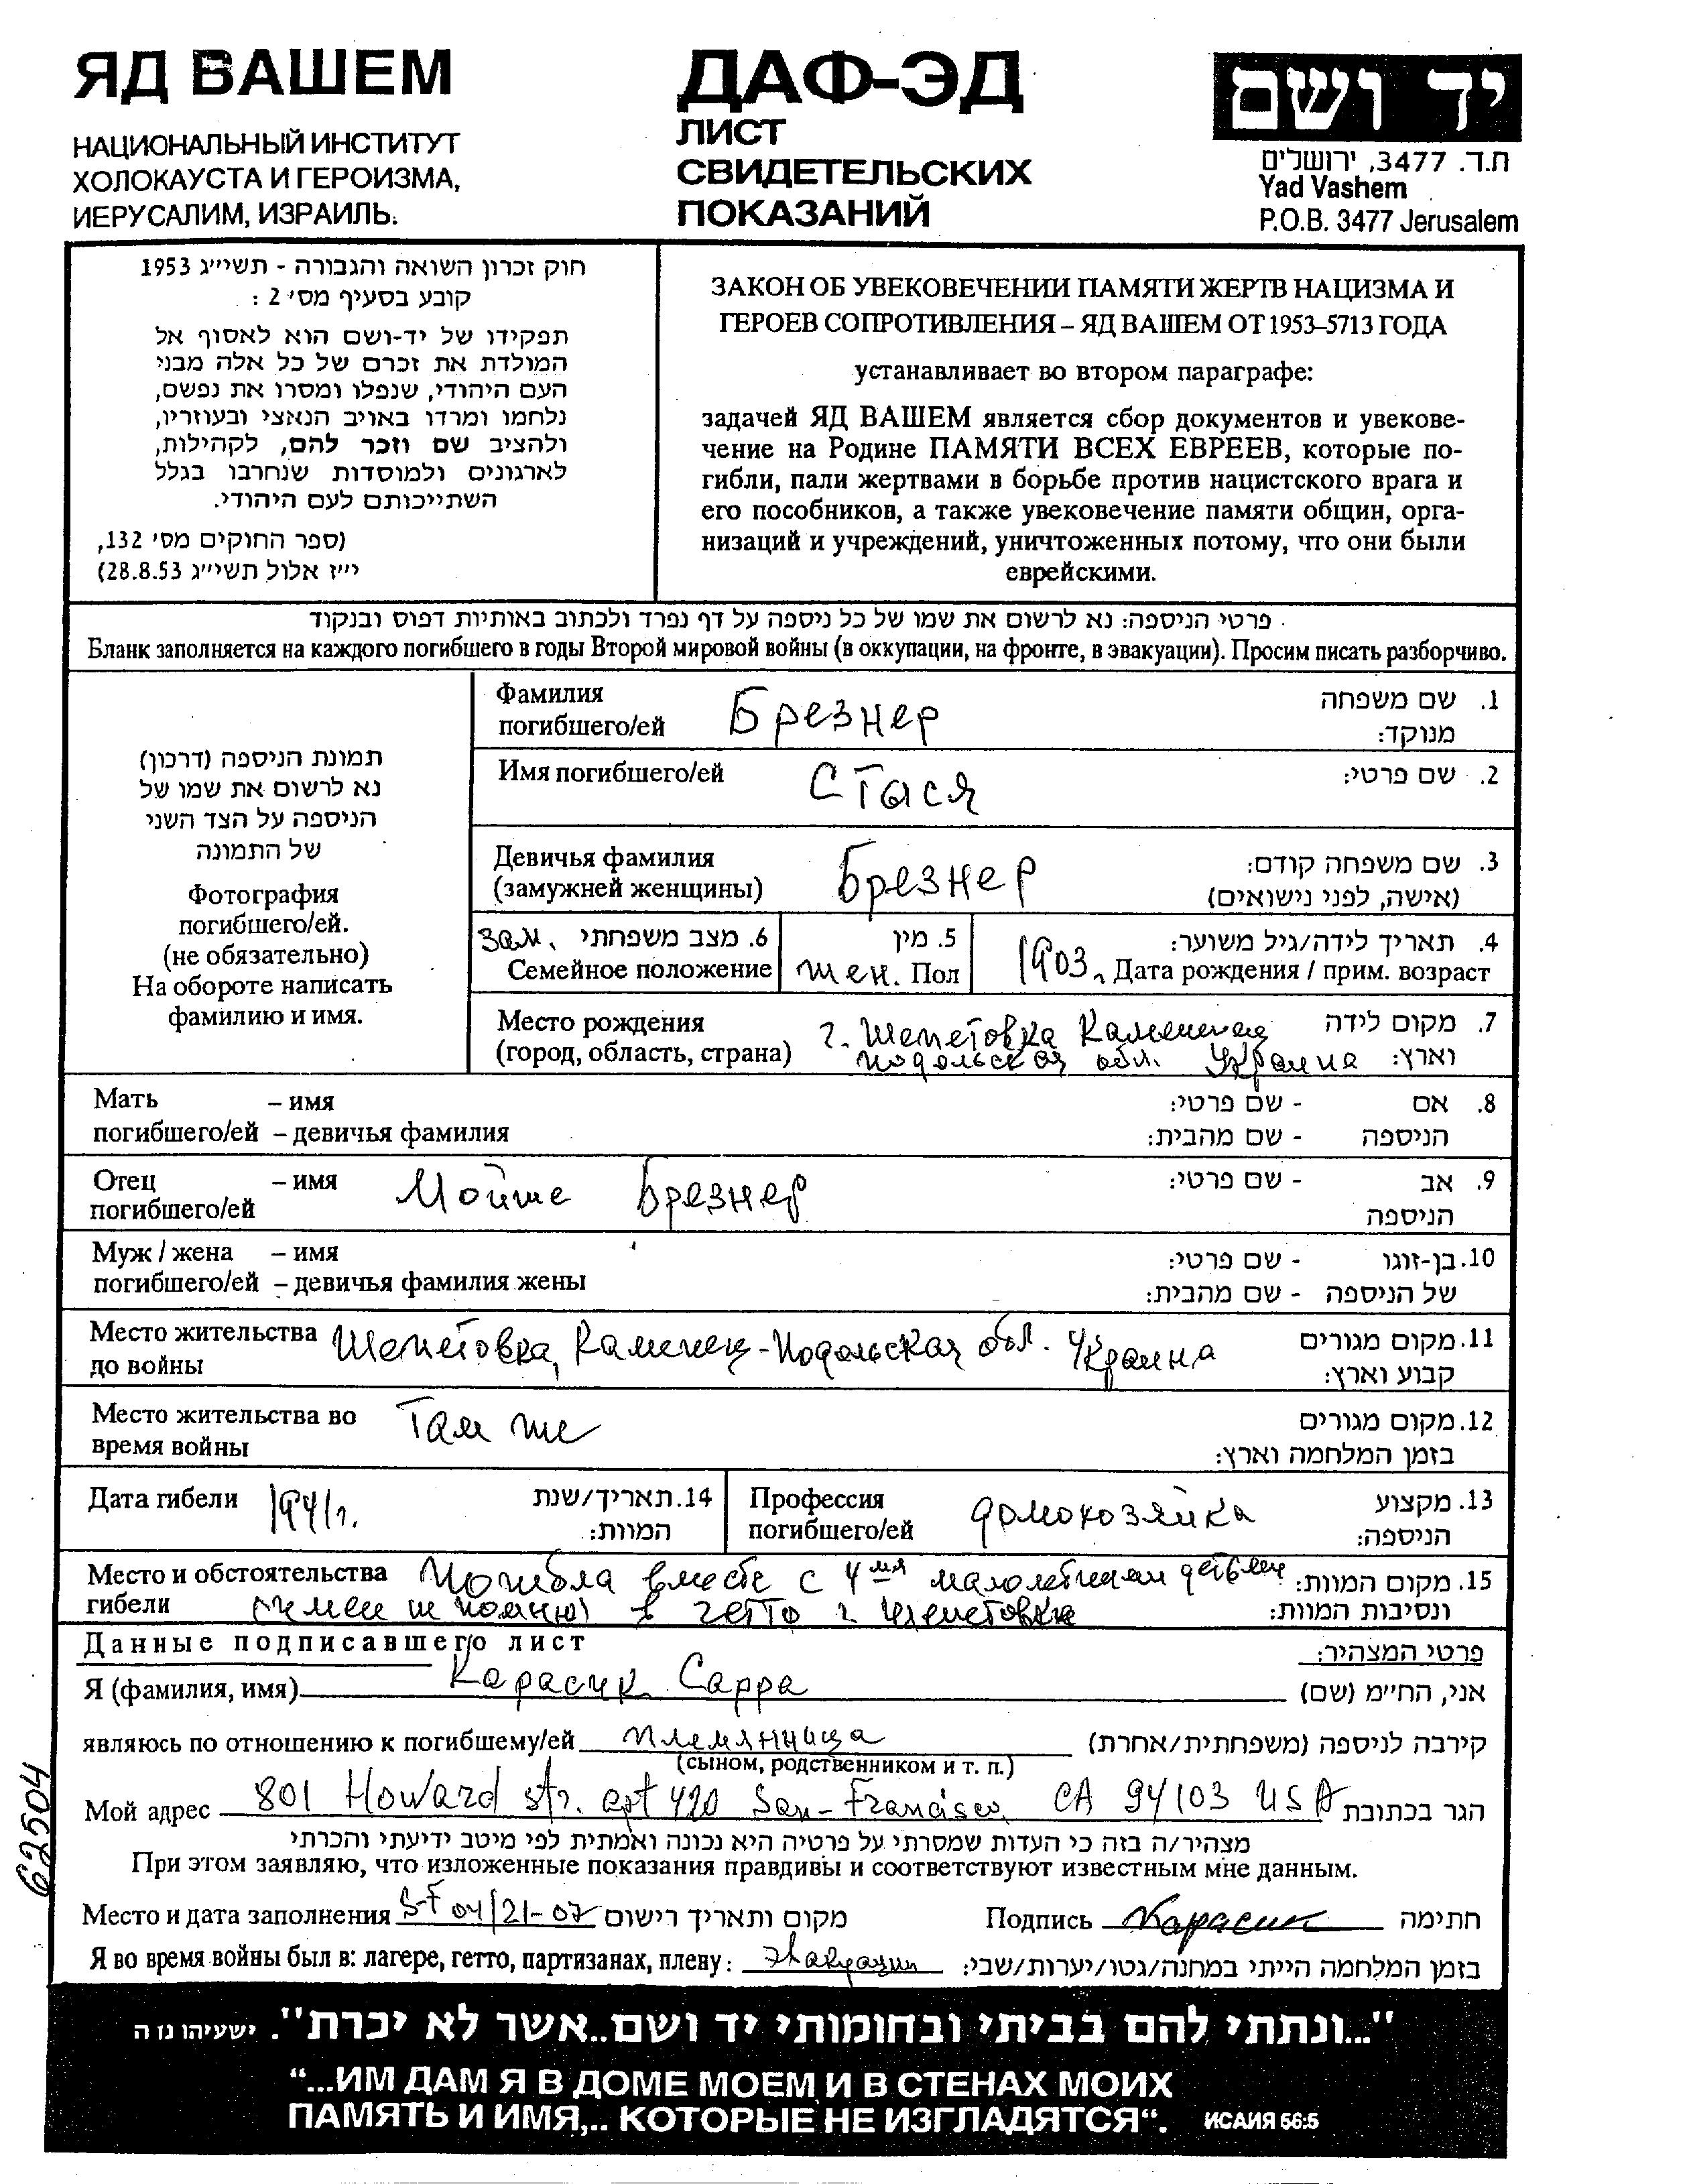 ЯД ВАШЕМ
НАЦИОНАЛЬНЫЙ ИНСТИТУТ
ХОЛОКАУСТА И ГЕРОИЗМА,
ИЕРУСАЛИМ, ИЗРАИЛЬ.
ДАФ-ЭД
ЛИСТ
СВИДЕТЕЛЬСКИХ
ПОКАЗАНИЙ
יד ושם
ת.ד. 3477, ירושלים
Yad Vashem
P.O.B. 3477 Jerusalem
חוק זכרון השואה והגבורה - תשי״ג 1953
קובע בסעיף מס׳ 2 :
תפקידו של יד-ושם הוא לאסוף אל
המולדת את זכרם של כל אלה מבני
העם היהודי, שנפלו ומסרו את נפשם,
נלחמו ומרדו באויב הנאצי ובעוזריו,
ולהציב שם וזכר להם, לקהילות,
לארגונים ולמוסדות שנחרבו בגלל
השתייכותם לעם היהודי.
(ספר החוקים מס׳ 132,
י״ז אלול תשי״ג 28.8.53)
ЗАКОН ОБ УВЕКОВЕЧЕНИИ ПАМЯТИ ЖЕРТВ НАЦИЗМА И
ГЕРОЕВ СОПРОТИВЛЕНИЯ – ЯД ВАШЕМ ОТ 1953–5713 ГОДА
устанавливает во втором параграфе:
задачей ЯД ВАШЕМ является сбор документов и увекове-
чение на Родине ПАМЯТИ ВСЕХ ЕВРЕЕВ, которые по-
гибли, пали жертвами в борьбе против нацистского врага и
его пособников, а также увековечение памяти общин, орга-
низаций и учреждений, уничтоженных потому, что они были
еврейскими.
פרטי הניספה: נא לרשום את שמו של כל ניספה על דף נפרד ולכתוב באותיות דפוס ובנקוד
Бланк заполняется на каждого погибшего в годы Второй мировой войны (в оккупации, на фронте, в эвакуации). Просим писать разборчиво.
תמונת הניספה (דרכון)
נא לרשום את שמו של
הניספה על הצד השני
של התמונה
Фотография
погибшего/ей.
(не обязательно)
На обороте написать
фамилию и имя.
Фамилия שם משפחה .1
погибшего/ей Брезнер מנוקד:
Имя погибшего/ей Стася שם פרטי: .2
Девичья фамилия שם משפחה קודם: .3
(замужней женщины) Брезнер (אישה, לפני נישואים)
зам. מצב משפחתי .6 מין .5 תאריך לידה/גיל משוער: .4
Семейное положение жен. Пол 1903г. Дата рождения / прим. возраст
Место рождения г. Шепетовка Каменец מקום לידה .7
(город, область, страна) Подольская обл. Украина וארץ:
Мать – имя שם פרטי: - אם .8
погибшего/ей – девичья фамилия שם מהבית: - הניספה
Отец – имя Мойше Брезнер שם פרטי: - אב .9
погибшего/ей הניספה
Муж / жена – имя שם פרטי: - בן-זוגו .10
погибшего/ей – девичья фамилия жены שם מהבית: - של הניספה
Место жительства Шепетовка, Каменец-Подольская обл. Украина מקום מגורים .11
до войны קבוע וארץ:
Место жительства во Там же מקום מגורים .12
время войны בזמן המלחמה וארץ:
Дата гибели 1941г. תאריך/שנת .14
המוות:
Профессия домохозяйка מקצוע .13
погибшего/ей הניספה:
Место и обстоятельства Погибла вместе с 4мя малолетними детьми מקום המוות: .15
гибели (имен не помню) в гетто г. Шепетовка ונסיבות המוות:
Данные подписавшего лист פרטי המצהיר:
Я (фамилия, имя) Карасик Сарра אני, החי״מ (שם)
являюсь по отношению к погибшему/ей племянница קירבה לניספה (משפחתית/אחרת)
(сыном, родственником и т. п.)
Мой адрес 801 Howard str. apt 420 San-Francisco, CA 94103 USA הגר בכתובת
מצהיר/ה בזה כי העדות שמסרתי על פרטיה היא נכונה ואמתית לפי מיטב ידיעתי והכרתי
При этом заявляю, что изложенные показания правдивы и соответствуют известным мне данным.
Место и дата заполнения S-F 04/21-07 מקום ותאריך רישום Подпись Карасик חתימה
Я во время войны был в: лагере, гетто, партизанах, плену: эвакуации בזמן המלחמה הייתי במחנה/גטו/יערות/שבי:
62504
"...ונתתי להם בביתי ובחומותי יד ושם..אשר לא יכרת". ישעיהו נו ה
“...ИМ ДАМ Я В ДОМЕ МОЕМ И В СТЕНАХ МОИХ
ПАМЯТЬ И ИМЯ,.. КОТОРЫЕ НЕ ИЗГЛАДЯТСЯ“. ИСАИЯ 56:5